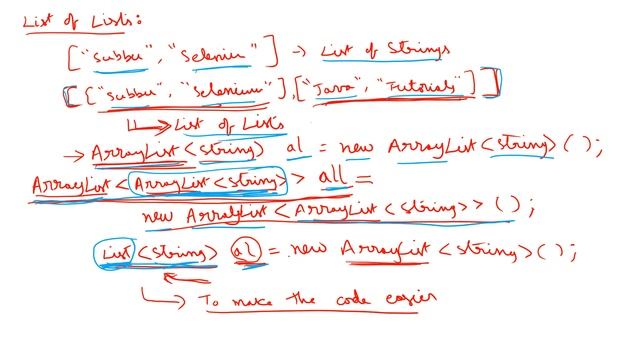 List of Lists:
["Subbu", "Selenium"] → List of Strings
[["Subbu", "Selenium"], ["Java", "Tutorials"]]
↳ List of Lists
→ ArrayList<String> al = new ArrayList<String>();
ArrayList<ArrayList<String>> all =
new ArrayList<ArrayList<String>>();
List<String> al = new ArrayList<String>();
↳ To make the code easier